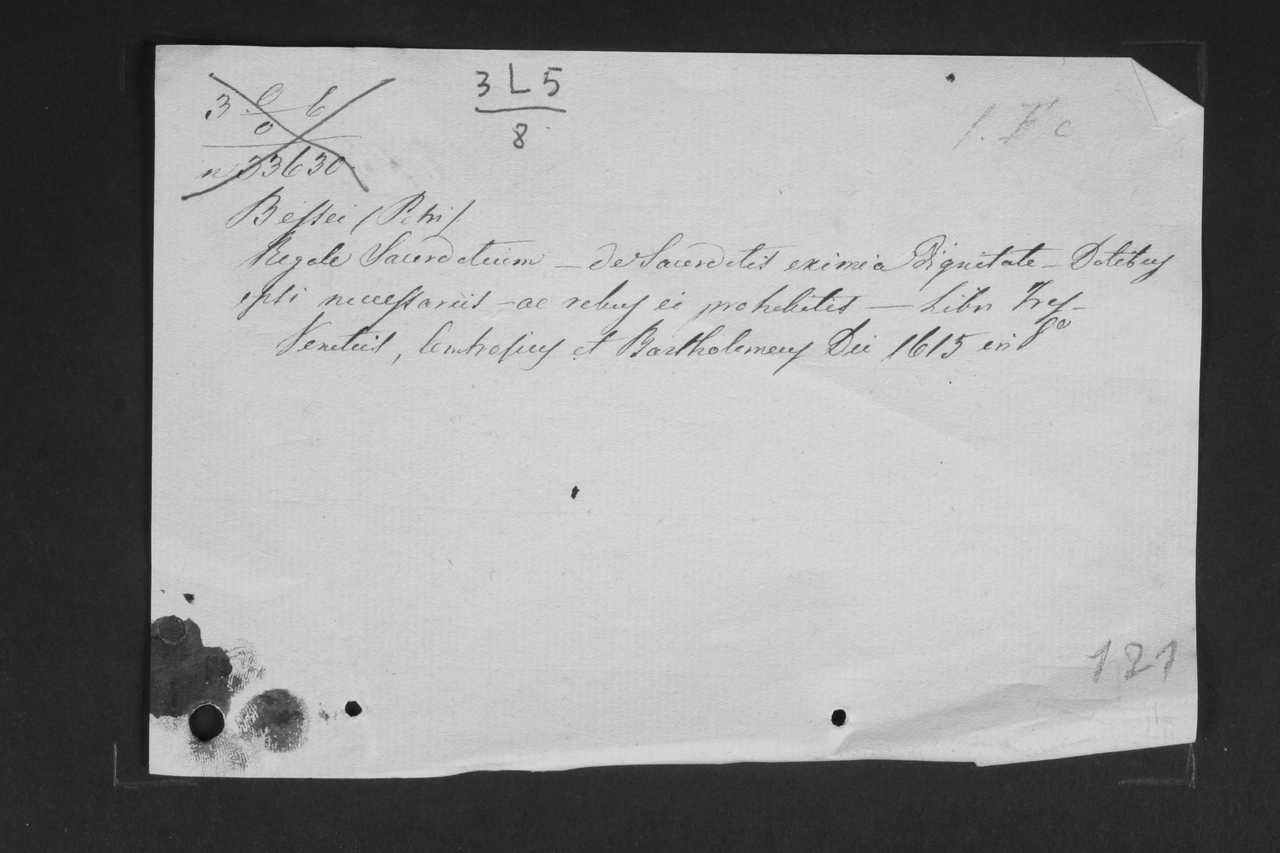 3 O 6
0
n 33630
3 L 5
8
Bessei (Petri)
Regale Sacerdotium – de Sacerdotis eximia Dignitate – Dotibus
ipsi necessariis – ac rebus ei prohibitis – Libri Tres –
Venetiis, Ambrosius et Bartholomeus Dei 1615 in 8o
121